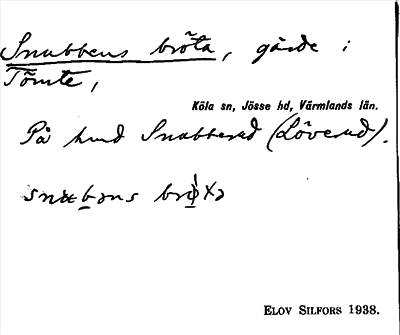 Snubbens bröta, gärde i
Tömte,
Köla sn, Jösse hd, Värmlands län.
På hmd Snabberud (Löverud).
ELOV SILFORS 1938.